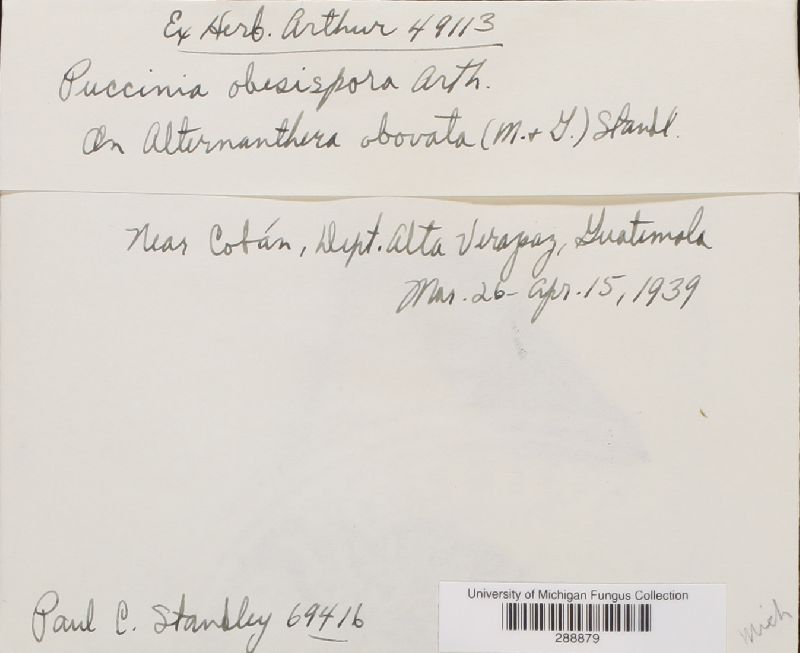 Ex Herb. Arthur 49113
Puccinia obesispora Arth.
On Alternanthera obovata (M. + G.) Standl.
Near Cobán, Dept. Alta Verapaz, Guatemala
Mar. 26 - Apr. 15, 1939
Paul C. Standley 69416
University of Michigan Fungus Collection
288879
Mich